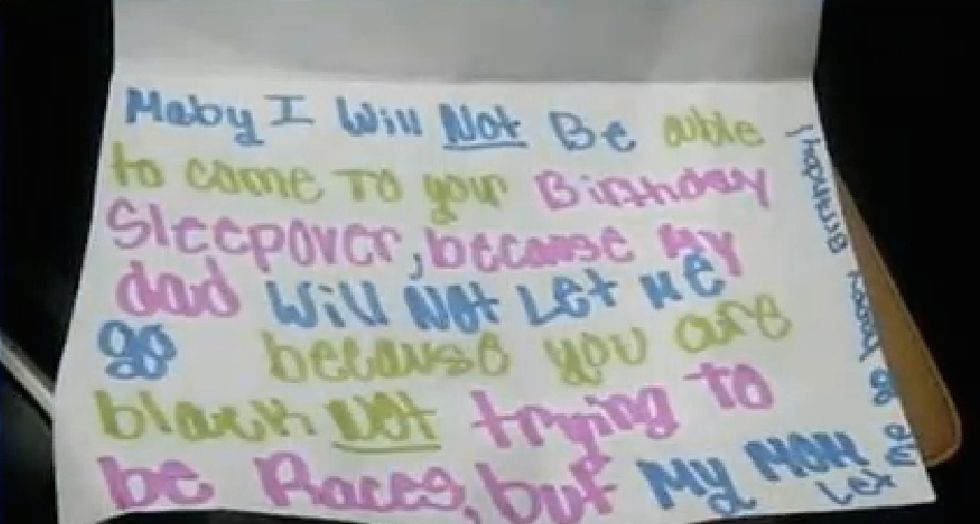 Maby I Will Not Be auble
to came To your Birthday
Sleepover, because My
dad Will Not Let Me
go because you are
black Not trying to
be Races, but My MOM
Let
Me go
Birthday!